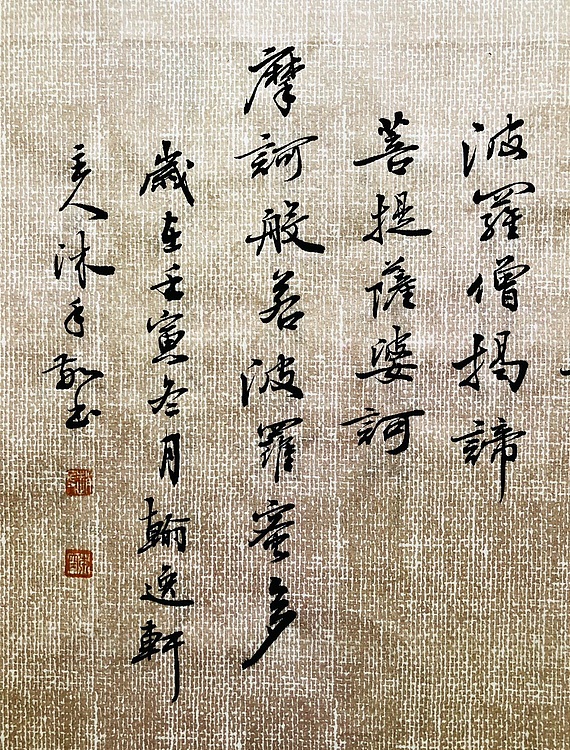 波羅僧揭諦
菩提薩婆訶
摩訶般若波羅蜜多
歲在壬寅冬月翰逸軒
主人沐手敬書